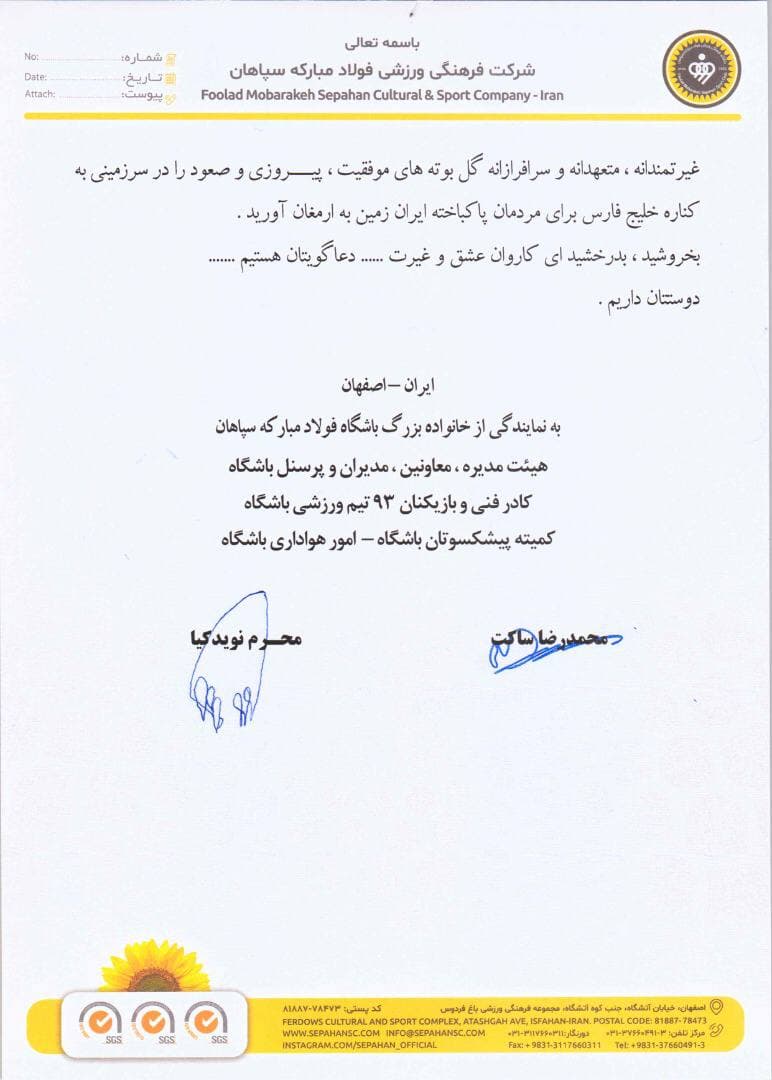 باسمه تعالی
شرکت فرهنگی ورزشی فولاد مبارکه سپاهان
Foolad Mobarakeh Sepahan Cultural & Sport Company - Iran
No: ........................ شماره:
Date: ........................ تـاریخ:
Attach: ........................ پیوست:
غیرتمندانه ، متعهدانه و سرافرازانه گل بوته های موفقیت ، پیـــــروزی و صعود را در سرزمینی به
کناره خلیج فارس برای مردمان پاکباخته ایران زمین به ارمغان آورید .
بخروشید ، بدرخشید ای کاروان عشق و غیرت ...... دعاگویتان هستیم .......
دوستتان داریم .
ایران – اصفهان
به نمایندگی از خانواده بزرگ باشگاه فولاد مبارکه سپاهان
هیئت مدیره ، معاونین ، مدیران و پرسنل باشگاه
کادر فنی و بازیکنان ۹۳ تیم ورزشی باشگاه
کمیته پیشکسوتان باشگاه – امور هواداری باشگاه
محمدرضا ساکت
محـــرم نویدکیا
اصفهان، خیابان آتشگاه، جنب کوه آتشگاه، مجموعه فرهنگی ورزشی باغ فردوس کد پستی: ۷۸۴۷۳-۸۱۸۸۷
FERDOWS CULTURAL AND SPORT COMPLEX, ATASHGAH AVE, ISFAHAN-IRAN. POSTAL CODE: 81887-78473
مرکز تلفن: ۳-۰۳۱-۳۷۶۶۰۴۹۱ دورنگار: ۰۳۱-۳۱۱۷۶۶۰۳۱۱ WWW.SEPAHANSC.COM INFO@SEPAHANSC.COM
INSTAGRAM.COM/SEPAHAN_OFFICIAL Fax: + 9831-3117660311 Tel: +9831-37660491-3
SGS SGS SGS